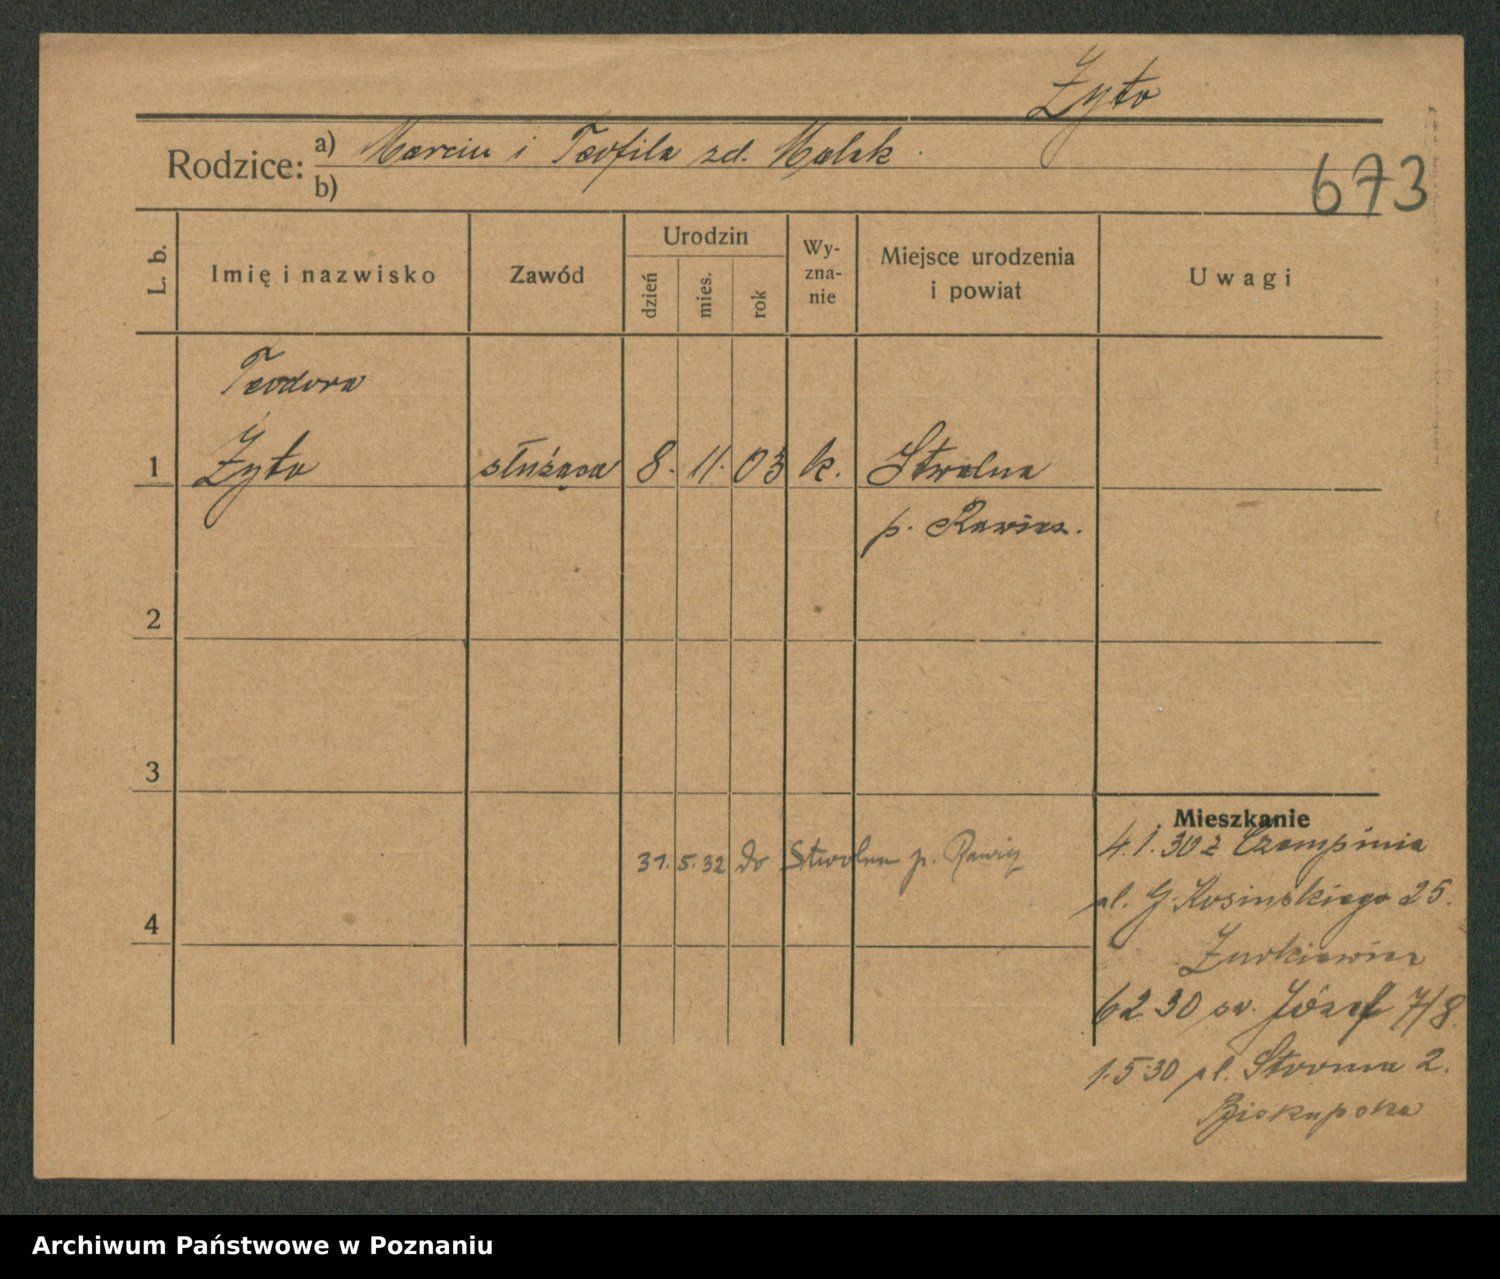 Żyto
Rodzice: a) Marcin i Teofila zd. Malak
b)
673
L. b.
Imię i nazwisko
Zawód
Urodzin
dzień
mies.
rok
Wy-
zna-
nie
Miejsce urodzenia
i powiat
Uwagi
Teodora
1 Żyto służąca 8. 11. 03 k. Stwolna
p. Rawicz.
2
3
Mieszkanie
4.1.30 z Czempinia
31.5.32 do Stwolna p. Rawicz
ul. G. Kosinskiego 25.
4
Żurkiewicz
6 2 30 św. Józef 7/8
1.5 30 ul. Stroma 2.
Biskupska
Archiwum Państwowe w Poznaniu